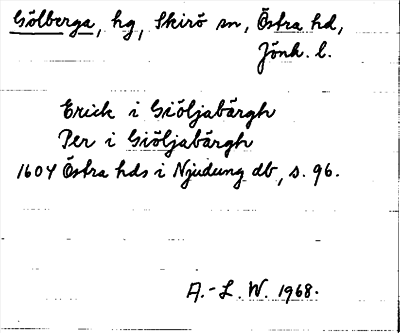 Gölberga, hg, Skirö sn, Östra hd,
Jönk. l.
Erick i Giöljabärgh
Per i Giöljabärgh
1604 Östra hds i Njudung db, s. 96.
A.-L. W. 1968.